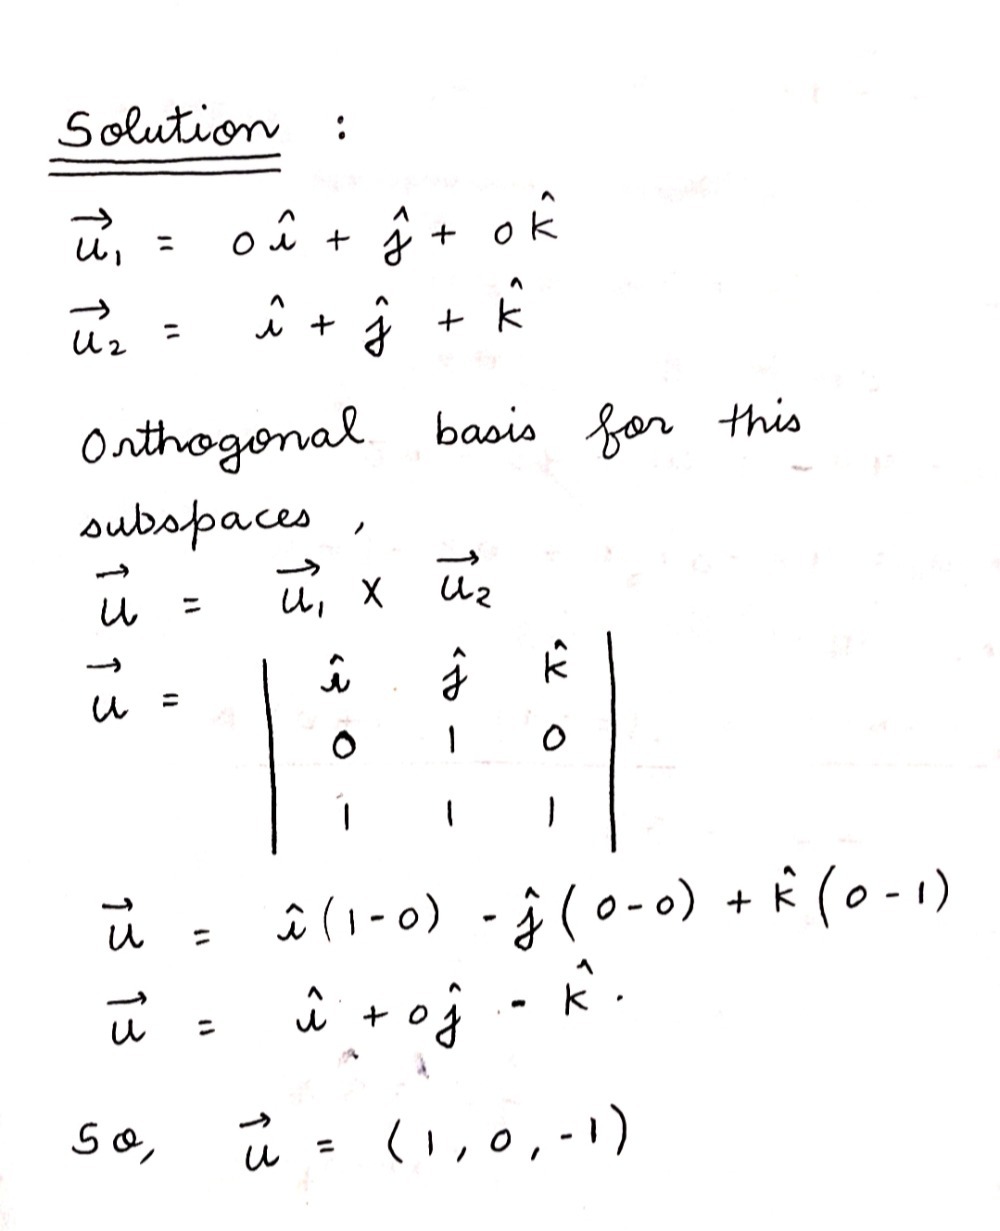 Solution :
u⃗₁ = 0î + ĵ + 0k̂
u⃗₂ = î + ĵ + k̂
Orthogonal basis for this
subspaces ,
u⃗ = u⃗₁ × u⃗₂
u⃗ = | î ĵ k̂ |
| 0 1 0 |
| 1 1 1 |
u⃗ = î(1-0) - ĵ(0-0) + k̂(0-1)
u⃗ = î + 0ĵ - k̂.
So, u⃗ = (1, 0, -1)